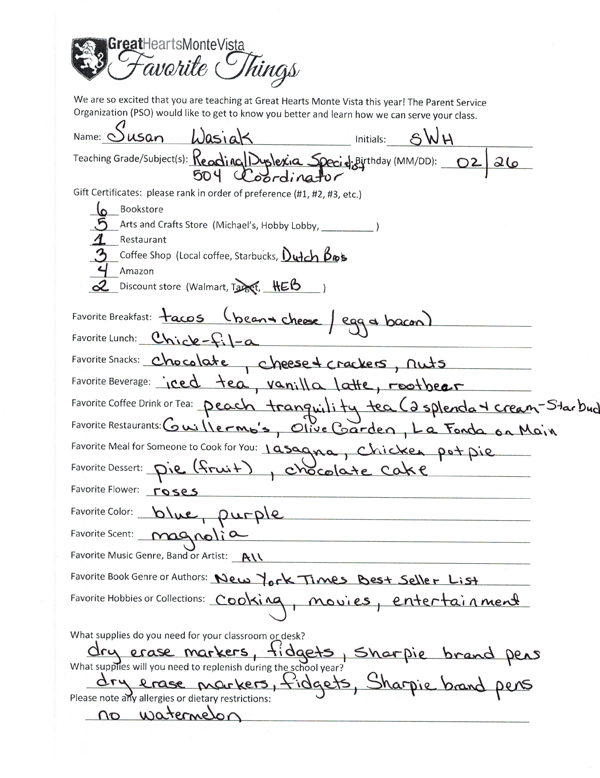 GreatHeartsMonteVista
Favorite Things
We are so excited that you are teaching at Great Hearts Monte Vista this year! The Parent Service
Organization (PSO) would like to get to know you better and learn how we can serve your class.
Name: Susan Wasiak Initials: SWH
Teaching Grade/Subject(s): Reading/Dyslexia Specialist Birthday (MM/DD): 02/26
504 Coordinator
Gift Certificates: please rank in order of preference (#1, #2, #3, etc.)
6 Bookstore
5 Arts and Crafts Store (Michael's, Hobby Lobby, __________ )
1 Restaurant
3 Coffee Shop (Local coffee, Starbucks, Dutch Bros
4 Amazon
2 Discount store (Walmart, Target, HEB )
Favorite Breakfast: tacos (bean & cheese / egg & bacon)
Favorite Lunch: Chick-fil-a
Favorite Snacks: chocolate, cheese & crackers, nuts
Favorite Beverage: iced tea, vanilla latte, rootbeer
Favorite Coffee Drink or Tea: peach tranquility tea (2 splenda & cream-Starbud
Favorite Restaurants: Guillermo's, Olive Garden, La Fonda on Main
Favorite Meal for Someone to Cook for You: lasagna, chicken pot pie
Favorite Dessert: pie (fruit), chocolate cake
Favorite Flower: roses
Favorite Color: blue, purple
Favorite Scent: magnolia
Favorite Music Genre, Band or Artist: All
Favorite Book Genre or Authors: New York Times Best Seller List
Favorite Hobbies or Collections: cooking, movies, entertainment
What supplies do you need for your classroom or desk?
dry erase markers, fidgets, Sharpie brand pens
What supplies will you need to replenish during the school year?
dry erase markers, fidgets, Sharpie brand pens
Please note any allergies or dietary restrictions:
no watermelon